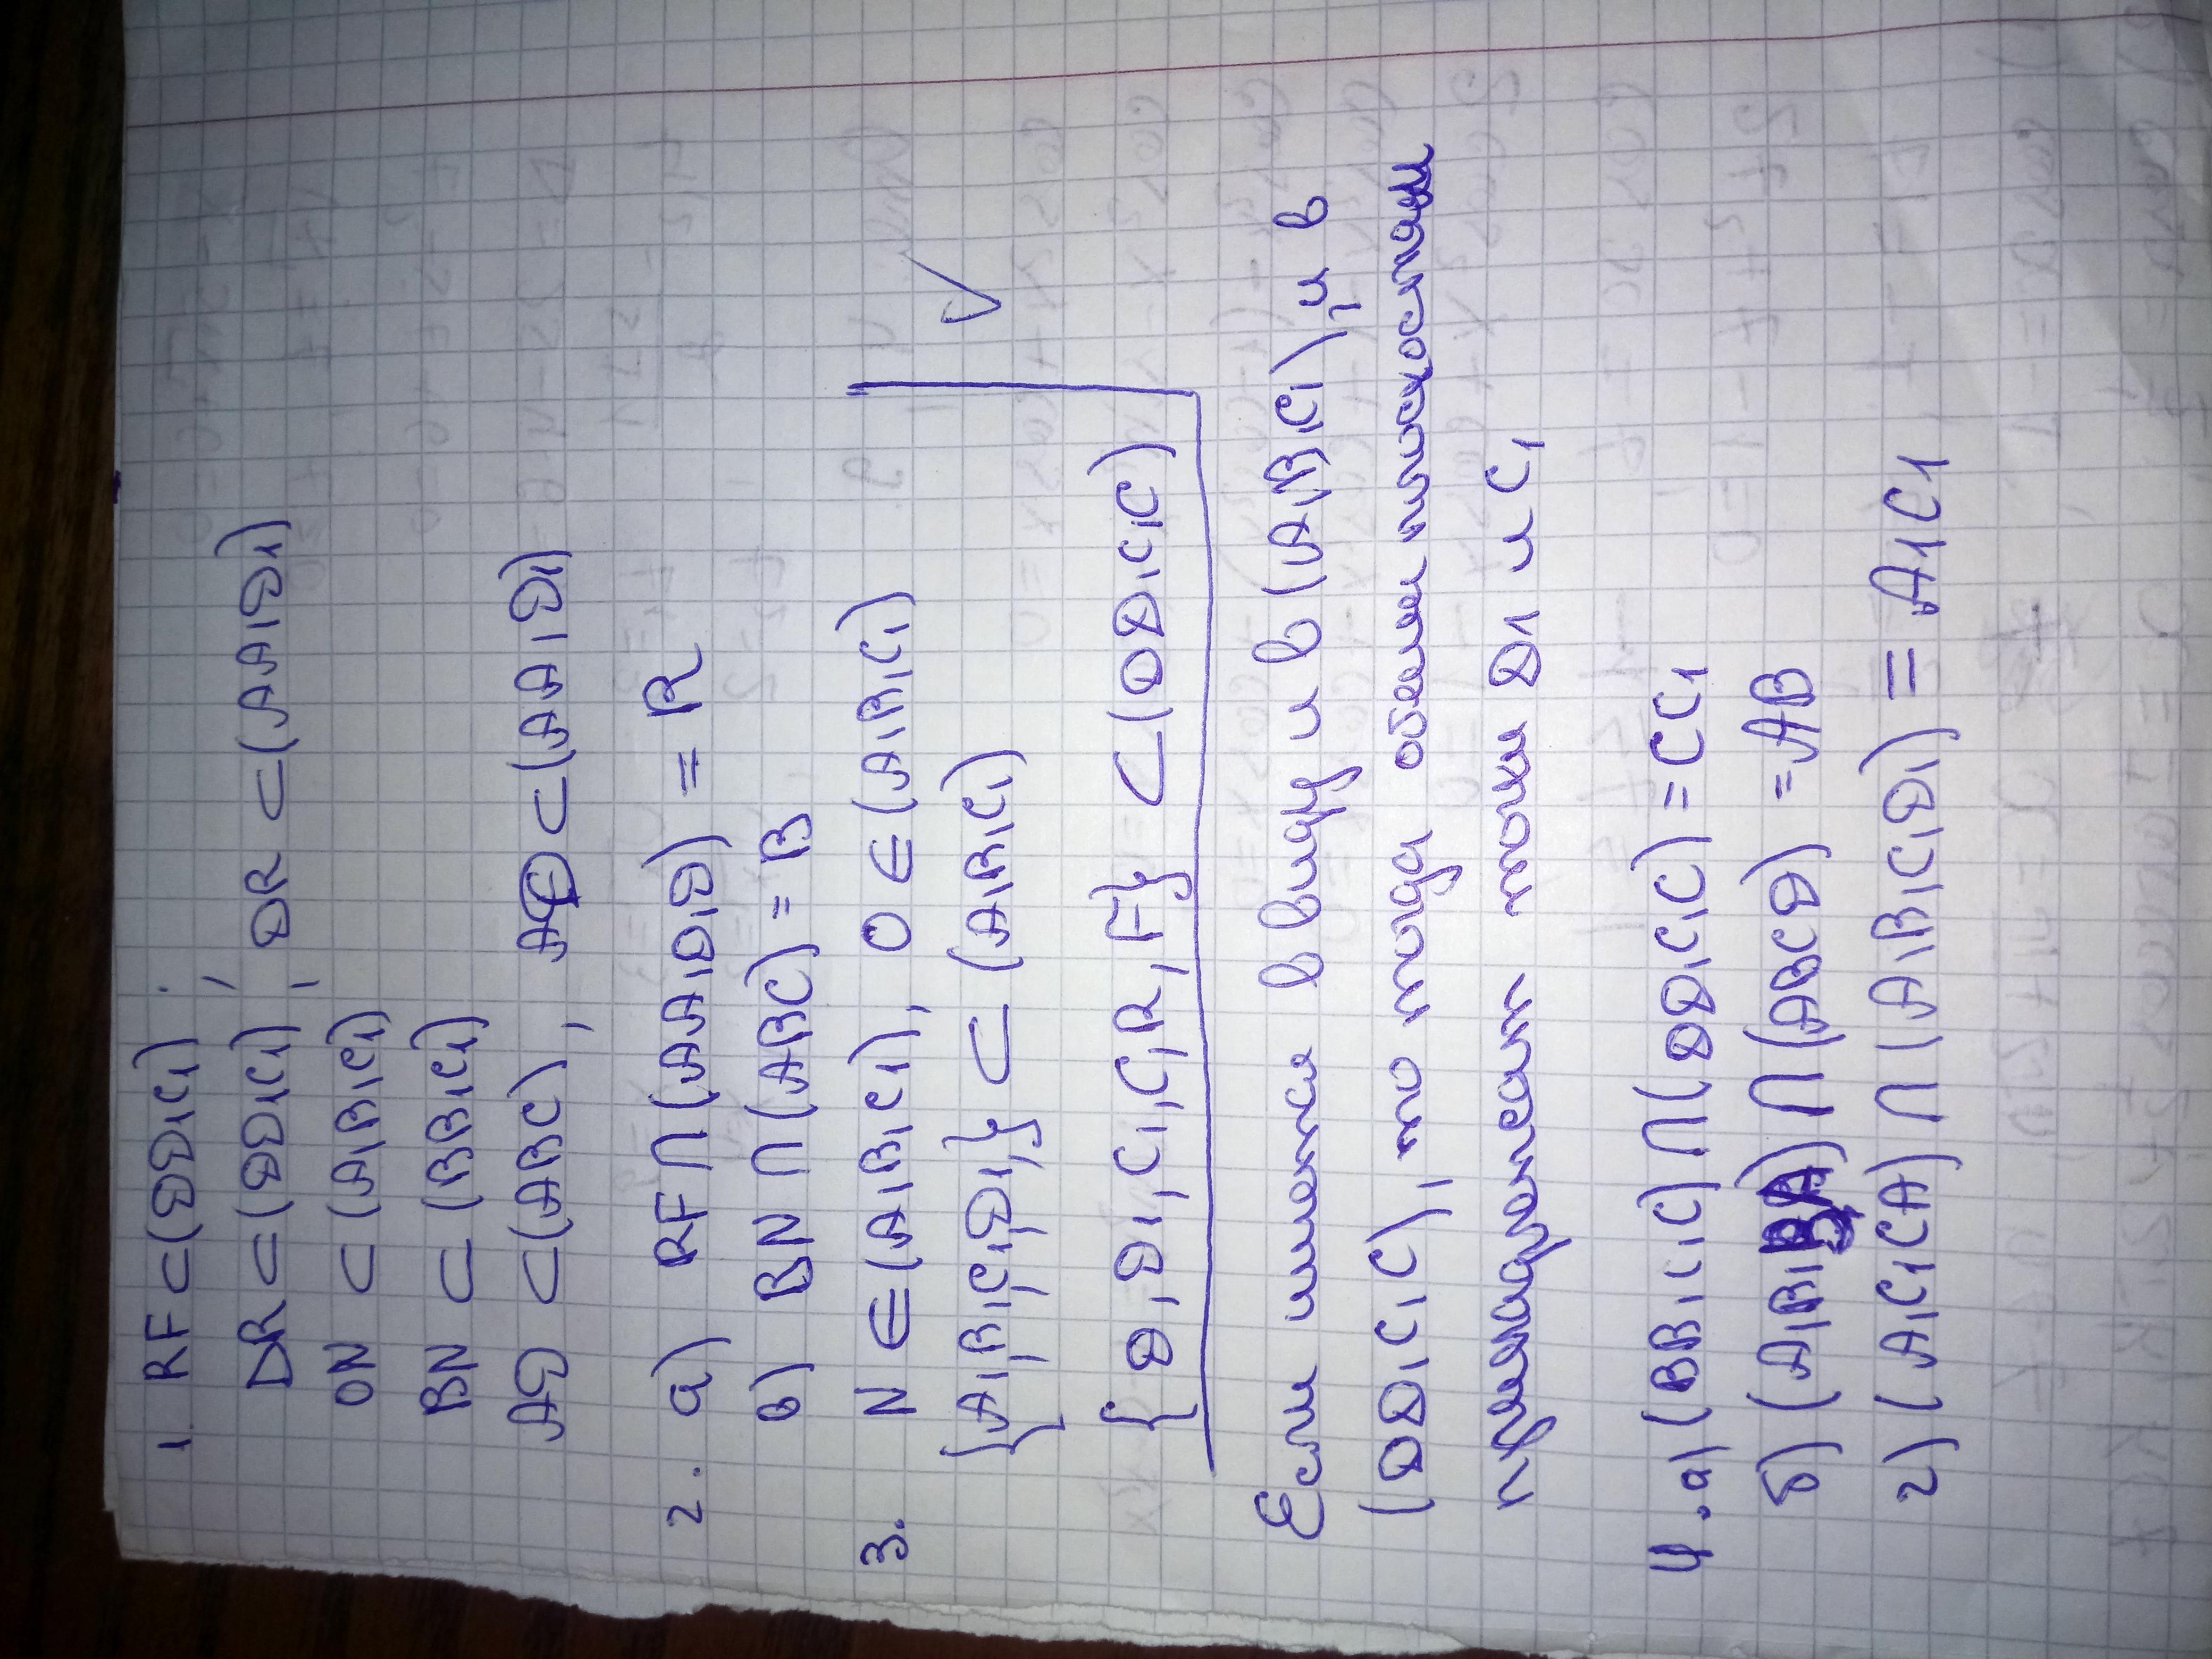 1. RF ⊂ (DD1C1);
DR ⊂ (DD1C1), DR ⊂ (AA1D1)
ON ⊂ (A1B1C1)
BN ⊂ (BB1C1)
AD ⊂ (ABC), AD ⊂ (AA1D1)
2. а) RF ∩ (AA1D1D) = R
в) BN ∩ (ABC) = B
3. N ∈ (A1B1C1), O ∈ (A1B1C1)
{A1,B1,C1,D1,} ⊂ (A1B1C1)
{D,D1,C1,C,R,F} ⊂ (DD1C1C)
Если имеются ввиду и в (A1B1C1), и в
(DD1C1C), то тогда одновременно
и последовательно там D1 и C1
4. а) (BB1C1C) ∩ (DD1C1C) = CC1
б) (A1B1BA) ∩ (ABCD) = AB
г) (A1C1CA) ∩ (A1B1C1D1) = A1C1